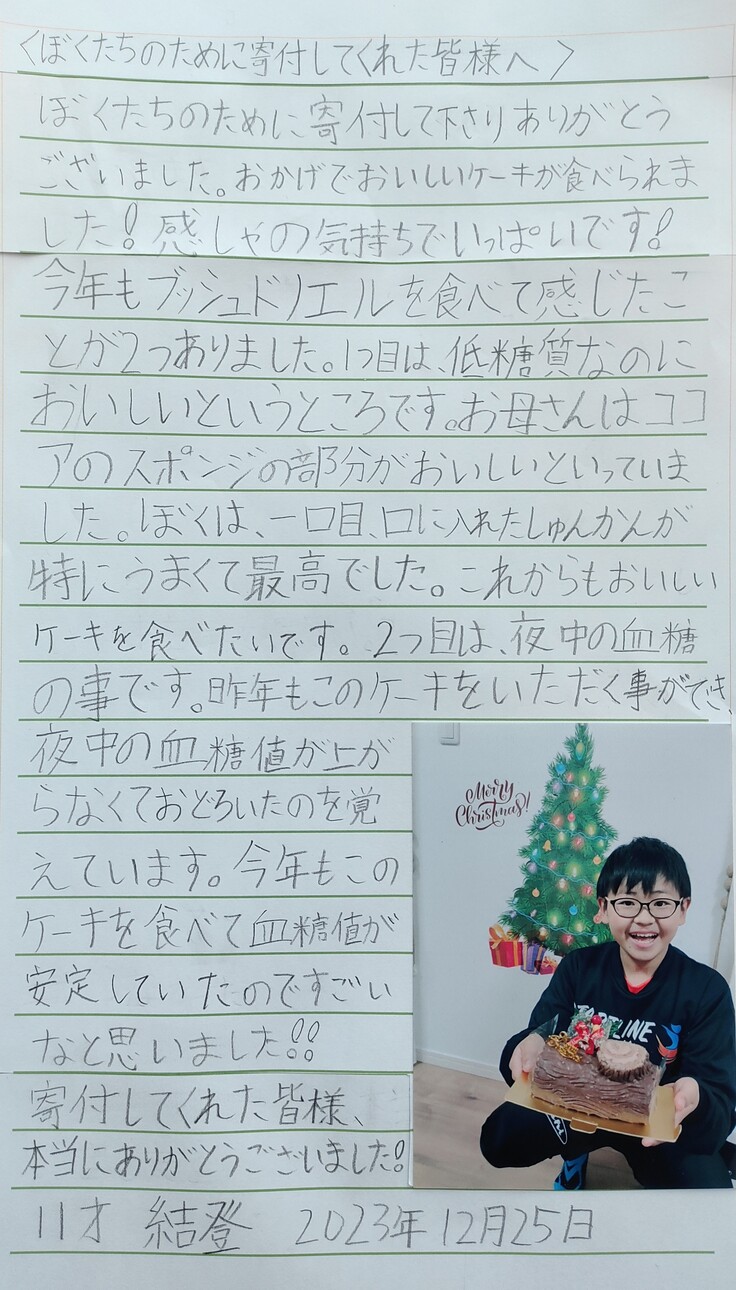 〈ぼくたちのために寄付してくれた皆様へ〉
ぼくたちのために寄付して下さりありがとう
ございました。おかげでおいしいケーキが食べられま
した!感しゃの気持ちでいっぱいです!
今年もブッシュドノエルを食べて感じたこ
とが2つありました。1つ目は、低糖質なのに
おいしいというところです。お母さんはココ
アのスポンジの部分がおいしいといっていま
した。ぼくは、一口目、口に入れたしゅんかんが
特にうまくて最高でした。これからもおいしい
ケーキを食べたいです。2つ目は、夜中の血糖
の事です。昨年もこのケーキをいただく事ができ、
夜中の血糖値が上が
らなくておどろいたのを覚
えています。今年もこの
ケーキを食べて血糖値が
安定していたのですごい
なと思いました!!
寄付してくれた皆様、
本当にありがとうございました!
11才 結登 2023年12月25日
Merry
Christmas!